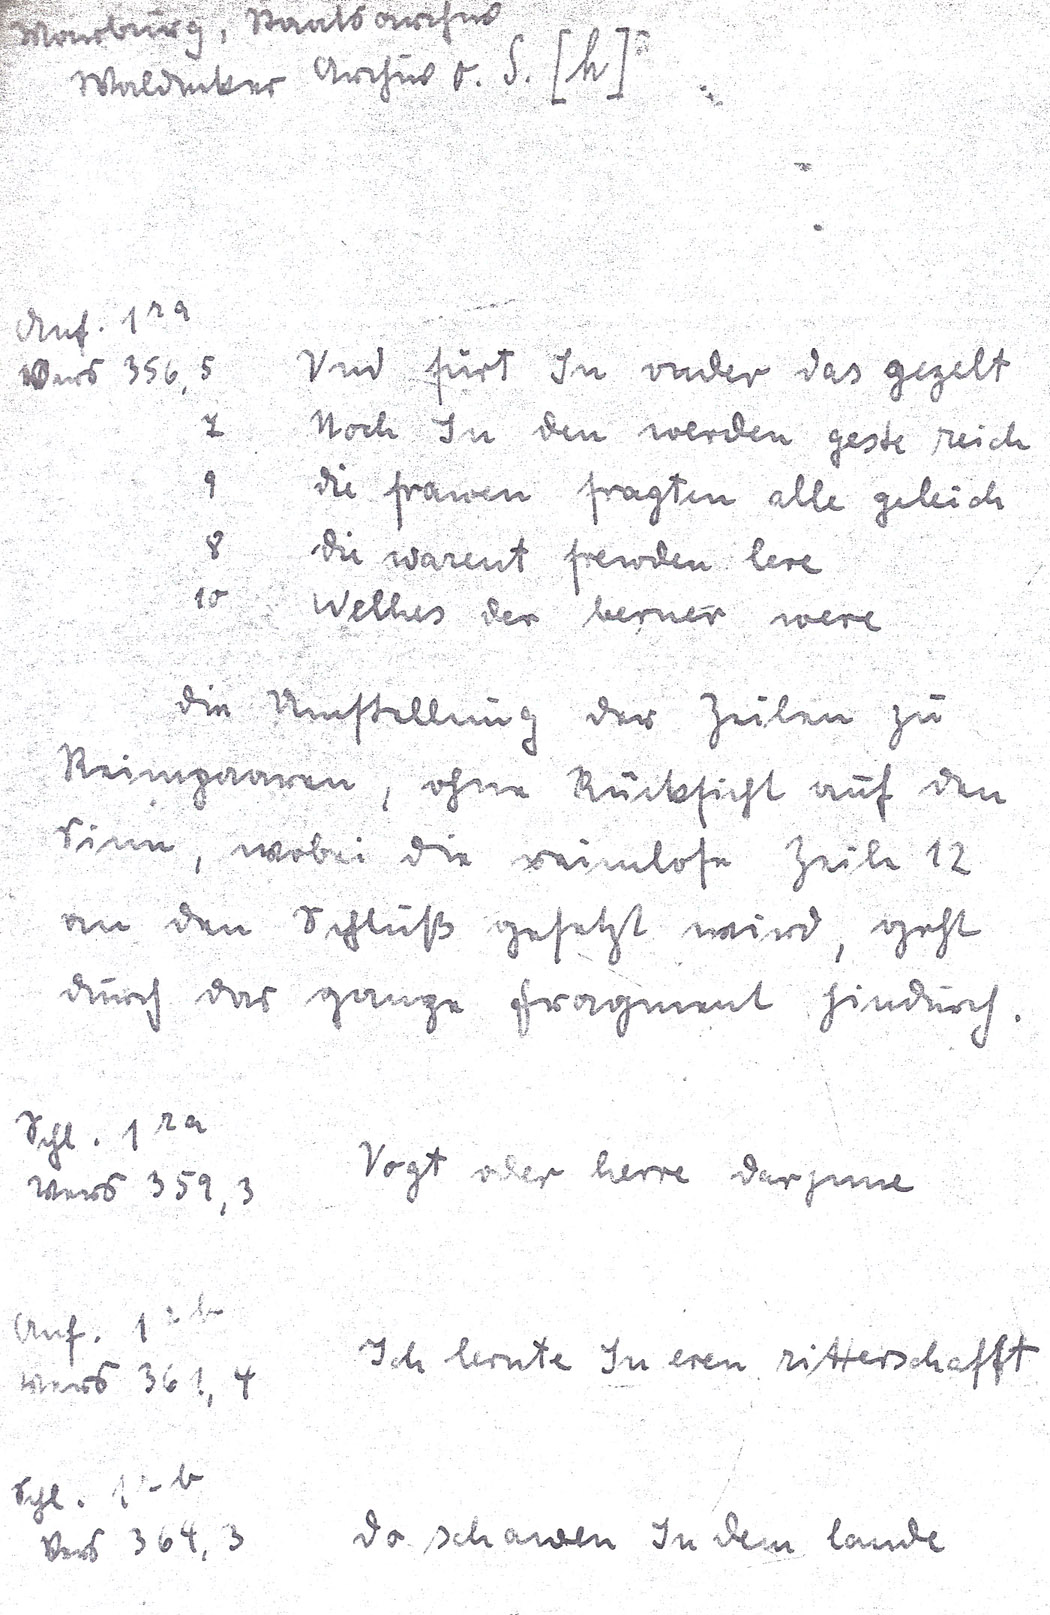 Marburg, Staatsarchiv
Waldecker Archiv o. S. [h]
Anf. 1ra
Vers 356,5 Vnd fürt In vnder das gezelt
7 Noch In den werden geste reich
9 die frawen fragten alle geleich
8 die warent frewden lere
10 Welhes der berner were
Die Umstellung der Zeilen zu
Reimpaaren, ohne Rücksicht auf den
Sinn, wobei die reimlose Zeile 12
an den Schluß gesetzt wird, geht
durch das ganze Fragment hindurch.
Schl. 1ra
Vers 359,3 Vogt oder herre darjnne
Anf. 1rb
Vers 361,4 Ich lernte In eren ritterschafft
Schl. 1rb
Vers 364,3 do schawen In dem lande